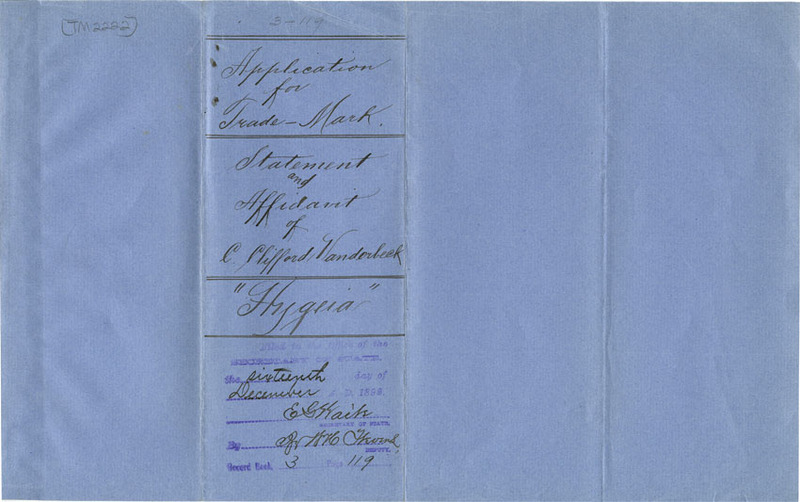 TM2222
3-119
Application
for
Trade-Mark.
Statement
and
Affidavit
of
C. Clifford Vanderbeck
"Hygeia"
Filed in the office of the
SECRETARY OF STATE.
the sixteenth day of
December A. D. 189
E G Waite
SECRETARY OF STATE.
By
DEPUTY.
Record Book 3 Page 119